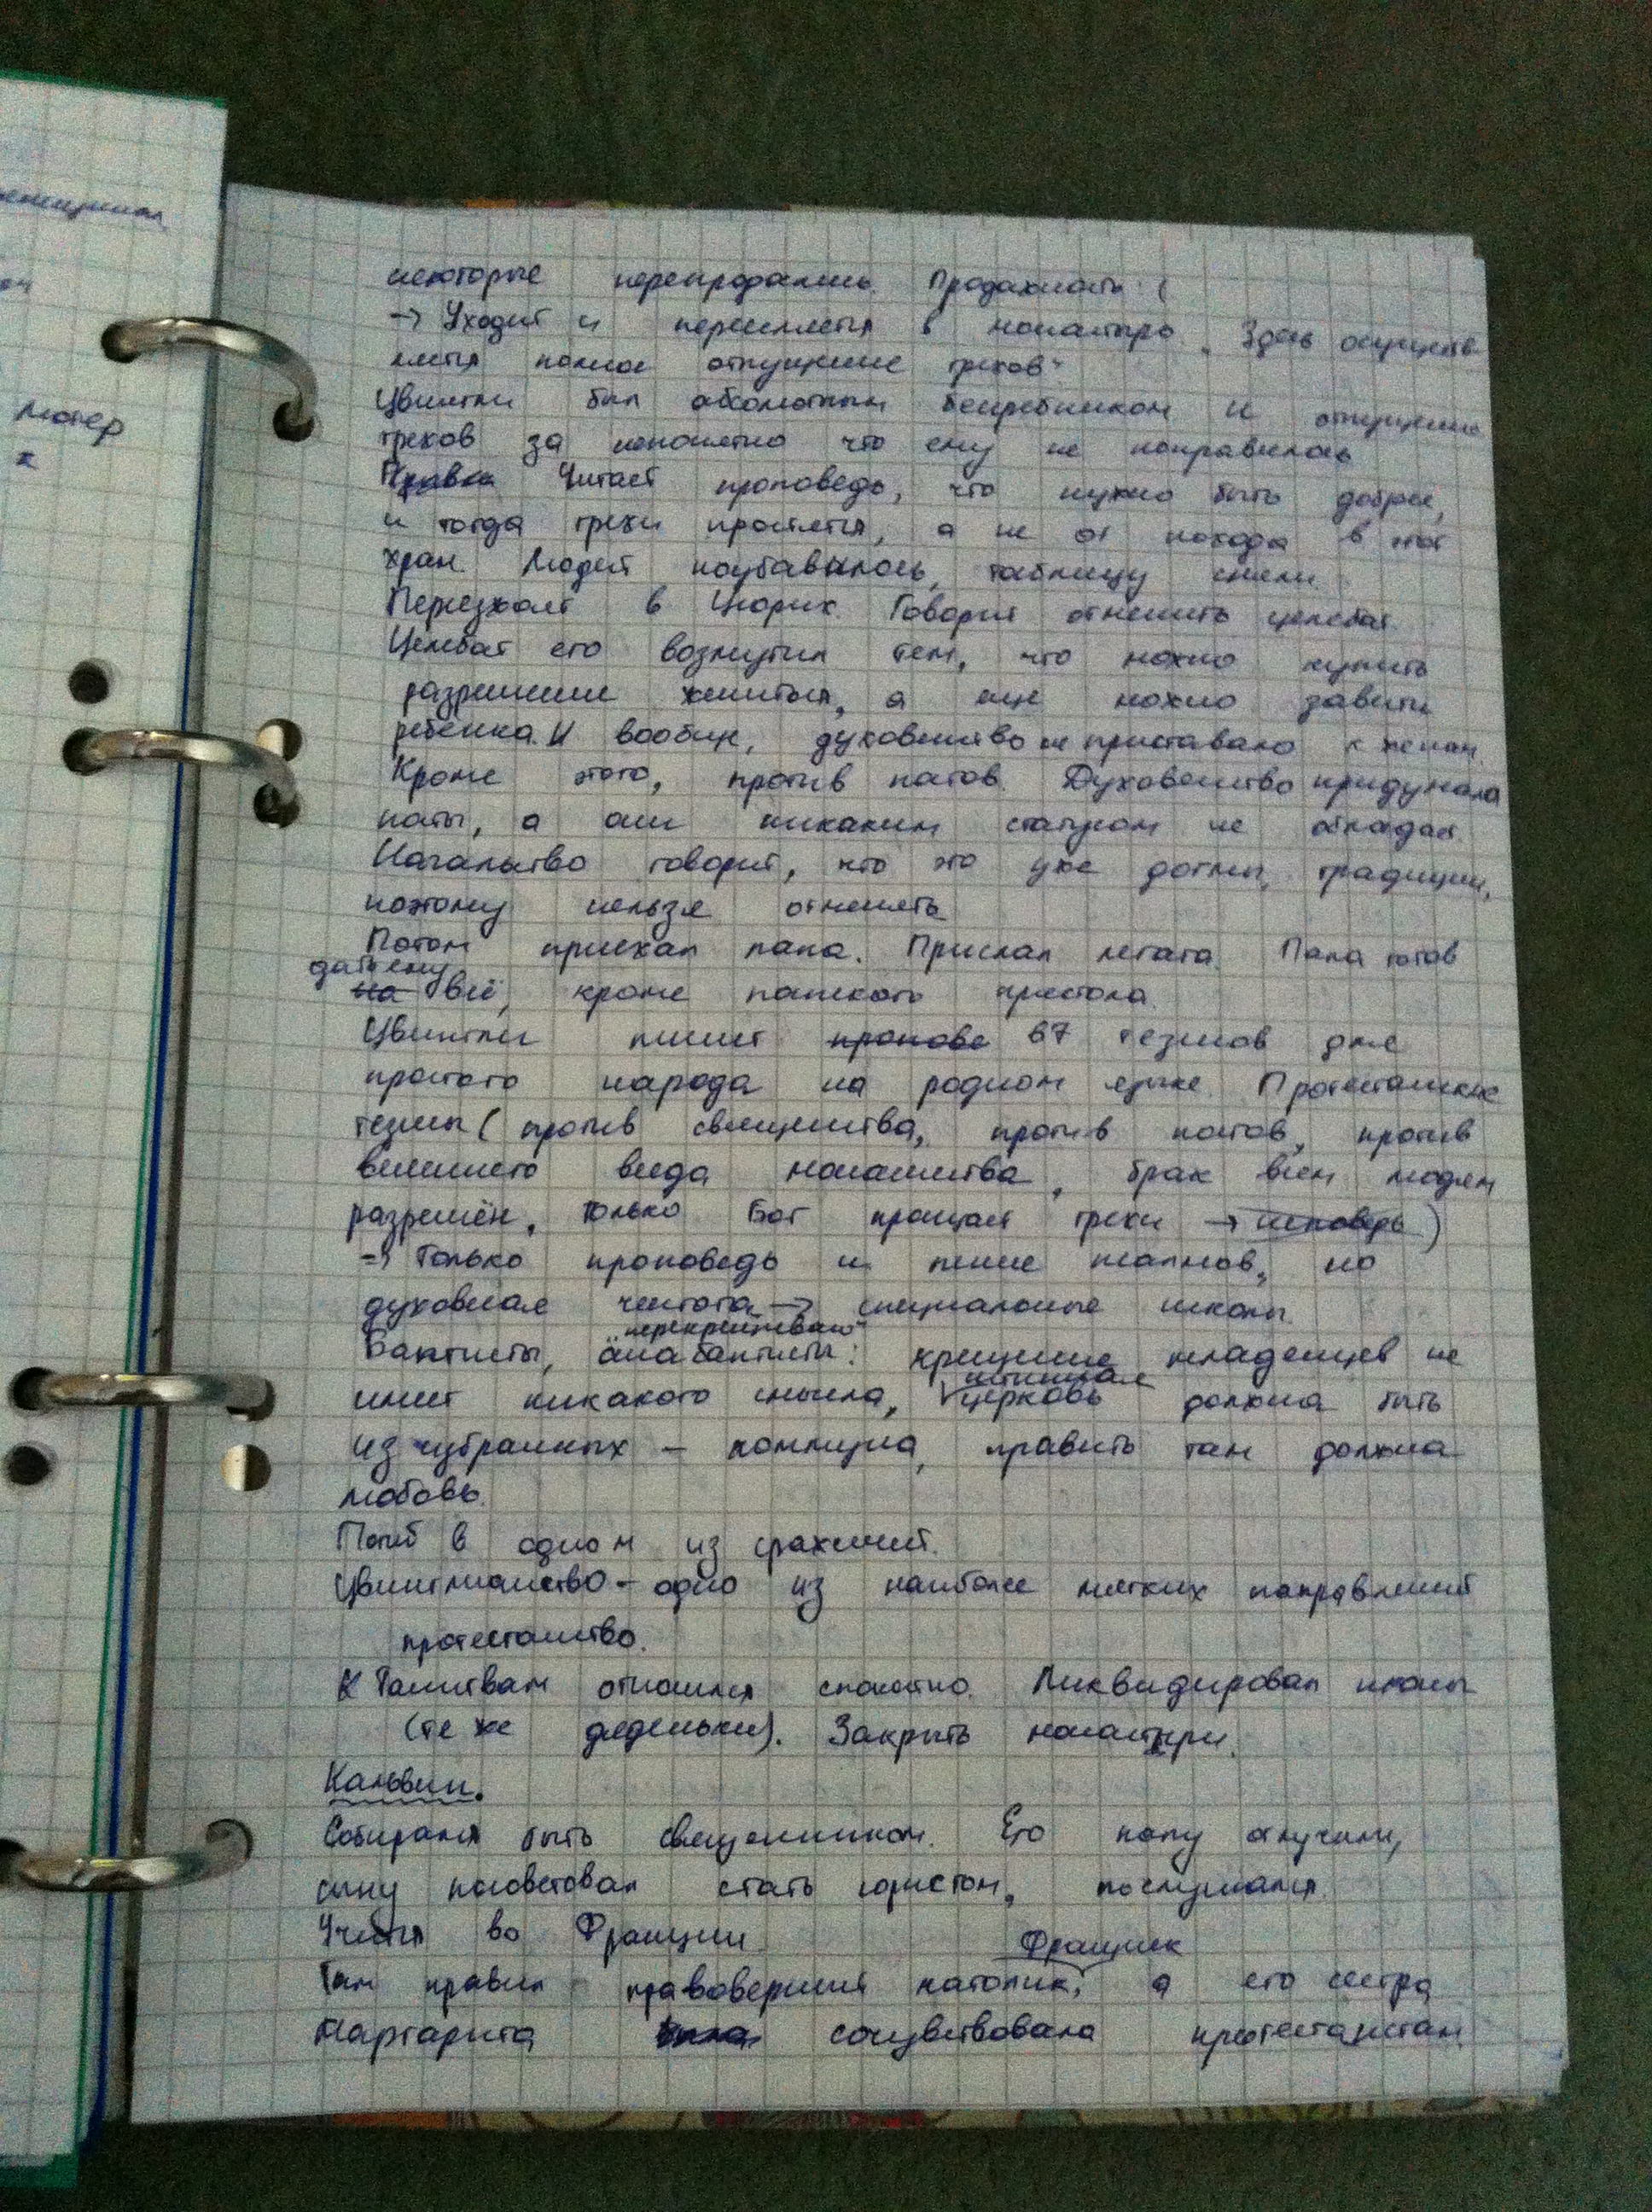 Лютер
некоторые перепродались. Продажность :(
→ Уходит и переселяется в монастырь. „Здесь осуществ-
ляется полное отпущение грехов“
Цвингли был абсолютным бессребником и отпущение
грехов за непонятно что ему не понравилось
Читает проповедь, что нужно быть добрее,
и тогда грехи простятся, а не от похода в этот
храм. Людей поубавилось, таблицу сняли.
Переезжает в Цюрих. Говорит отменить целебат.
Целебат его возмутил тем, что можно купить
разрешение жениться, а ещё можно завести
ребёнка. И вообще, духовенство не приставало к женам.
Кроме этого, против папов. Духовенство придумала
папы, а они никаким статусом не обладают.
Начальство говорит, что это уже догмы, традиции,
поэтому нельзя отменять
Потом приехал папа. Прислал легата. Папа готов
дать ему
на всё, кроме папского престола.
Цвингли пишет пропове 67 тезисов для
простого народа на родном языке. Протестантские
тезисы (против священства, против постов, против
внешнего вида монашества, брак всем людям
разрешён, только Бог прощает грехи → исповедь)
→ Только проповедь и пение псалмов, но
духовная чистота → специальные школы.
„перекрещиваю“
Баптисты, анабаптисты: крещение младенцев не
истинная
имеет никакого смысла, церковь должна быть
из избранных – коммуна, править там должна
любовь.
Погиб в одном из сражений.
Цвинглианство – одно из наиболее мягких направлений
протестанство.
К Таинствам относился спокойно. Ликвидировал иконы
(те же дяденьки). Закрыть монастыри.
Кальвин.
Собирался быть священником. Его папу отлучили,
сыну посоветовал стать юристом, послушался.
Учился во Франции.
Франциск
Там правил правоверный католик, а его сестра
Маргарита была сочувствовала протестантам.